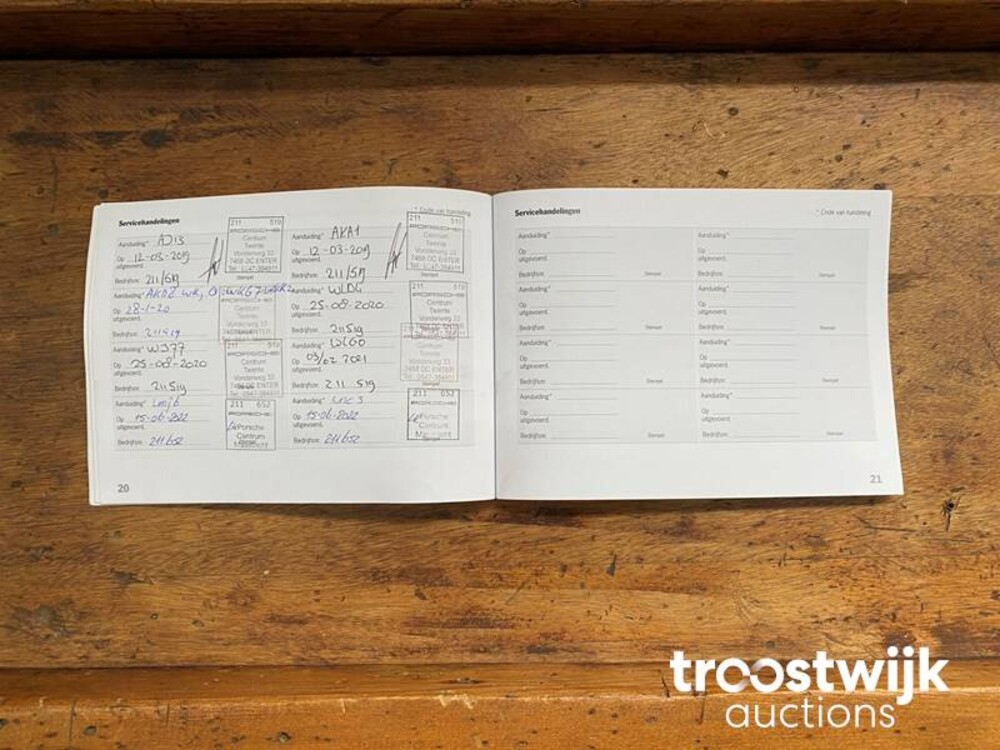 Servicehandelingen
* Code van handeling
Aanduiding*
Op 12-03-2019
uitgevoerd.
Bedrijfsnr. 211/519
211 519
PORSCHE
Centrum
Twente
Vonderweg 33
7468 DC ENTER
Tel. 0547-384911
Aanduiding* AKA1
Op 12-03-2019
uitgevoerd.
Bedrijfsnr. 211/519
211 519
PORSCHE
Centrum
Twente
Vonderweg 33
7468 DC ENTER
Tel. 0547-384911
Stempel
Aanduiding*
Op 28-1-20
uitgevoerd.
Bedrijfsnr. 211519
Centrum
Twente
Vonderweg 33
Aanduiding*
Op 25-08-2020
uitgevoerd.
Bedrijfsnr. 211519
211 519
PORSCHE
Centrum
Twente
Aanduiding* WJ77
Op 25-08-2020
uitgevoerd.
Bedrijfsnr. 211519
Centrum
Twente
Vonderweg 33
7468 DC ENTER
Aanduiding*
Op 03/02 2021
uitgevoerd.
Bedrijfsnr. 211 519
Centrum
Twente
Vonderweg 33
7468 DC ENTER
Tel. 0547-384911
Aanduiding*
Op 15-06-2022
uitgevoerd.
Bedrijfsnr. 211652
211 652
PORSCHE
Porsche
Centrum
Aanduiding*
Op 15-06-2022
uitgevoerd.
Bedrijfsnr. 211652
211 652
PORSCHE
Porsche
Centrum
20
Servicehandelingen
* Code van handeling
Aanduiding*
Op
uitgevoerd.
Bedrijfsnr.
Stempel
Aanduiding*
Op
uitgevoerd.
Bedrijfsnr.
Stempel
Aanduiding*
Op
uitgevoerd.
Bedrijfsnr.
Stempel
Aanduiding*
Op
uitgevoerd.
Bedrijfsnr.
Stempel
Aanduiding*
Op
uitgevoerd.
Bedrijfsnr.
Stempel
Aanduiding*
Op
uitgevoerd.
Bedrijfsnr.
Stempel
Aanduiding*
Op
uitgevoerd.
Bedrijfsnr.
Stempel
Aanduiding*
Op
uitgevoerd.
Bedrijfsnr.
Stempel
21
troostwijk
auctions